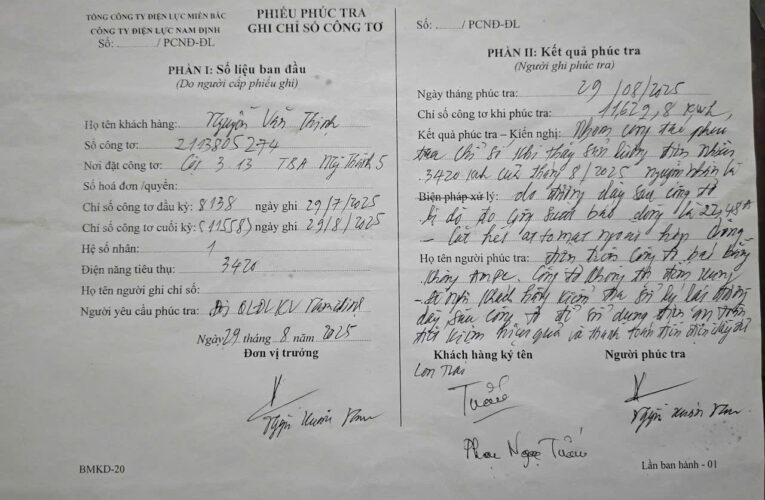 TỔNG CÔNG TY ĐIỆN LỰC MIỀN BẮC
CÔNG TY ĐIỆN LỰC NAM ĐỊNH
Số: ....../ PCNĐ-ĐL
PHIẾU PHÚC TRA
GHI CHỈ SỐ CÔNG TƠ
PHẦN I: Số liệu ban đầu
(Do người cấp phiếu ghi)
Họ tên khách hàng: Nguyễn Văn Thịnh
Số công tơ: 2113805274
Nơi đặt công tơ: Cột 3.13 TBA Mỹ Thịnh 5
Số hoá đơn /quyển:
Chỉ số công tơ đầu kỳ: 8138 ngày ghi 29/7/2025
Chỉ số công tơ cuối kỳ: (11558) ngày ghi 29/8/2025
Hệ số nhân: 1
Điện năng tiêu thụ: 3420
Họ tên người ghi chỉ số:
Người yêu cầu phúc tra: Đội QLĐLKV
Ngày 29 tháng 8 năm 2025
Đơn vị trưởng
Nguyễn Xuân
BMKD-20
Số: ....../ PCNĐ-ĐL
PHẦN II: Kết quả phúc tra
(Người ghi phúc tra)
Ngày tháng phúc tra: 29/08/2025
Chỉ số công tơ khi phúc tra: 11629,8 kWh,
Kết quả phúc tra – Kiến nghị: Nhóm công tác phúc
tra chỉ số khi thấy sản lượng điện nhiều
3420 kWh của tháng 8/2025 nguyên nhân là
Biện pháp xử lý: do đường dây sau công tơ
bị dò đo dòng là 22,48A
- Cắt hết attomat ngoài hộp
Họ tên người phúc tra: công tơ báo bằng
không Ampe. Công tơ không
- Đề nghị khách hàng kiểm tra xử lý lại đường
dây sau công tơ để sử dụng điện an toàn
tiết kiệm hiệu quả và thanh toán tiền điện đầy đủ
Khách hàng ký tên
Người phúc tra
Con trai
Tuấn
Phạm Ngọc Tuấn
Nguyễn Xuân
Lần ban hành - 01